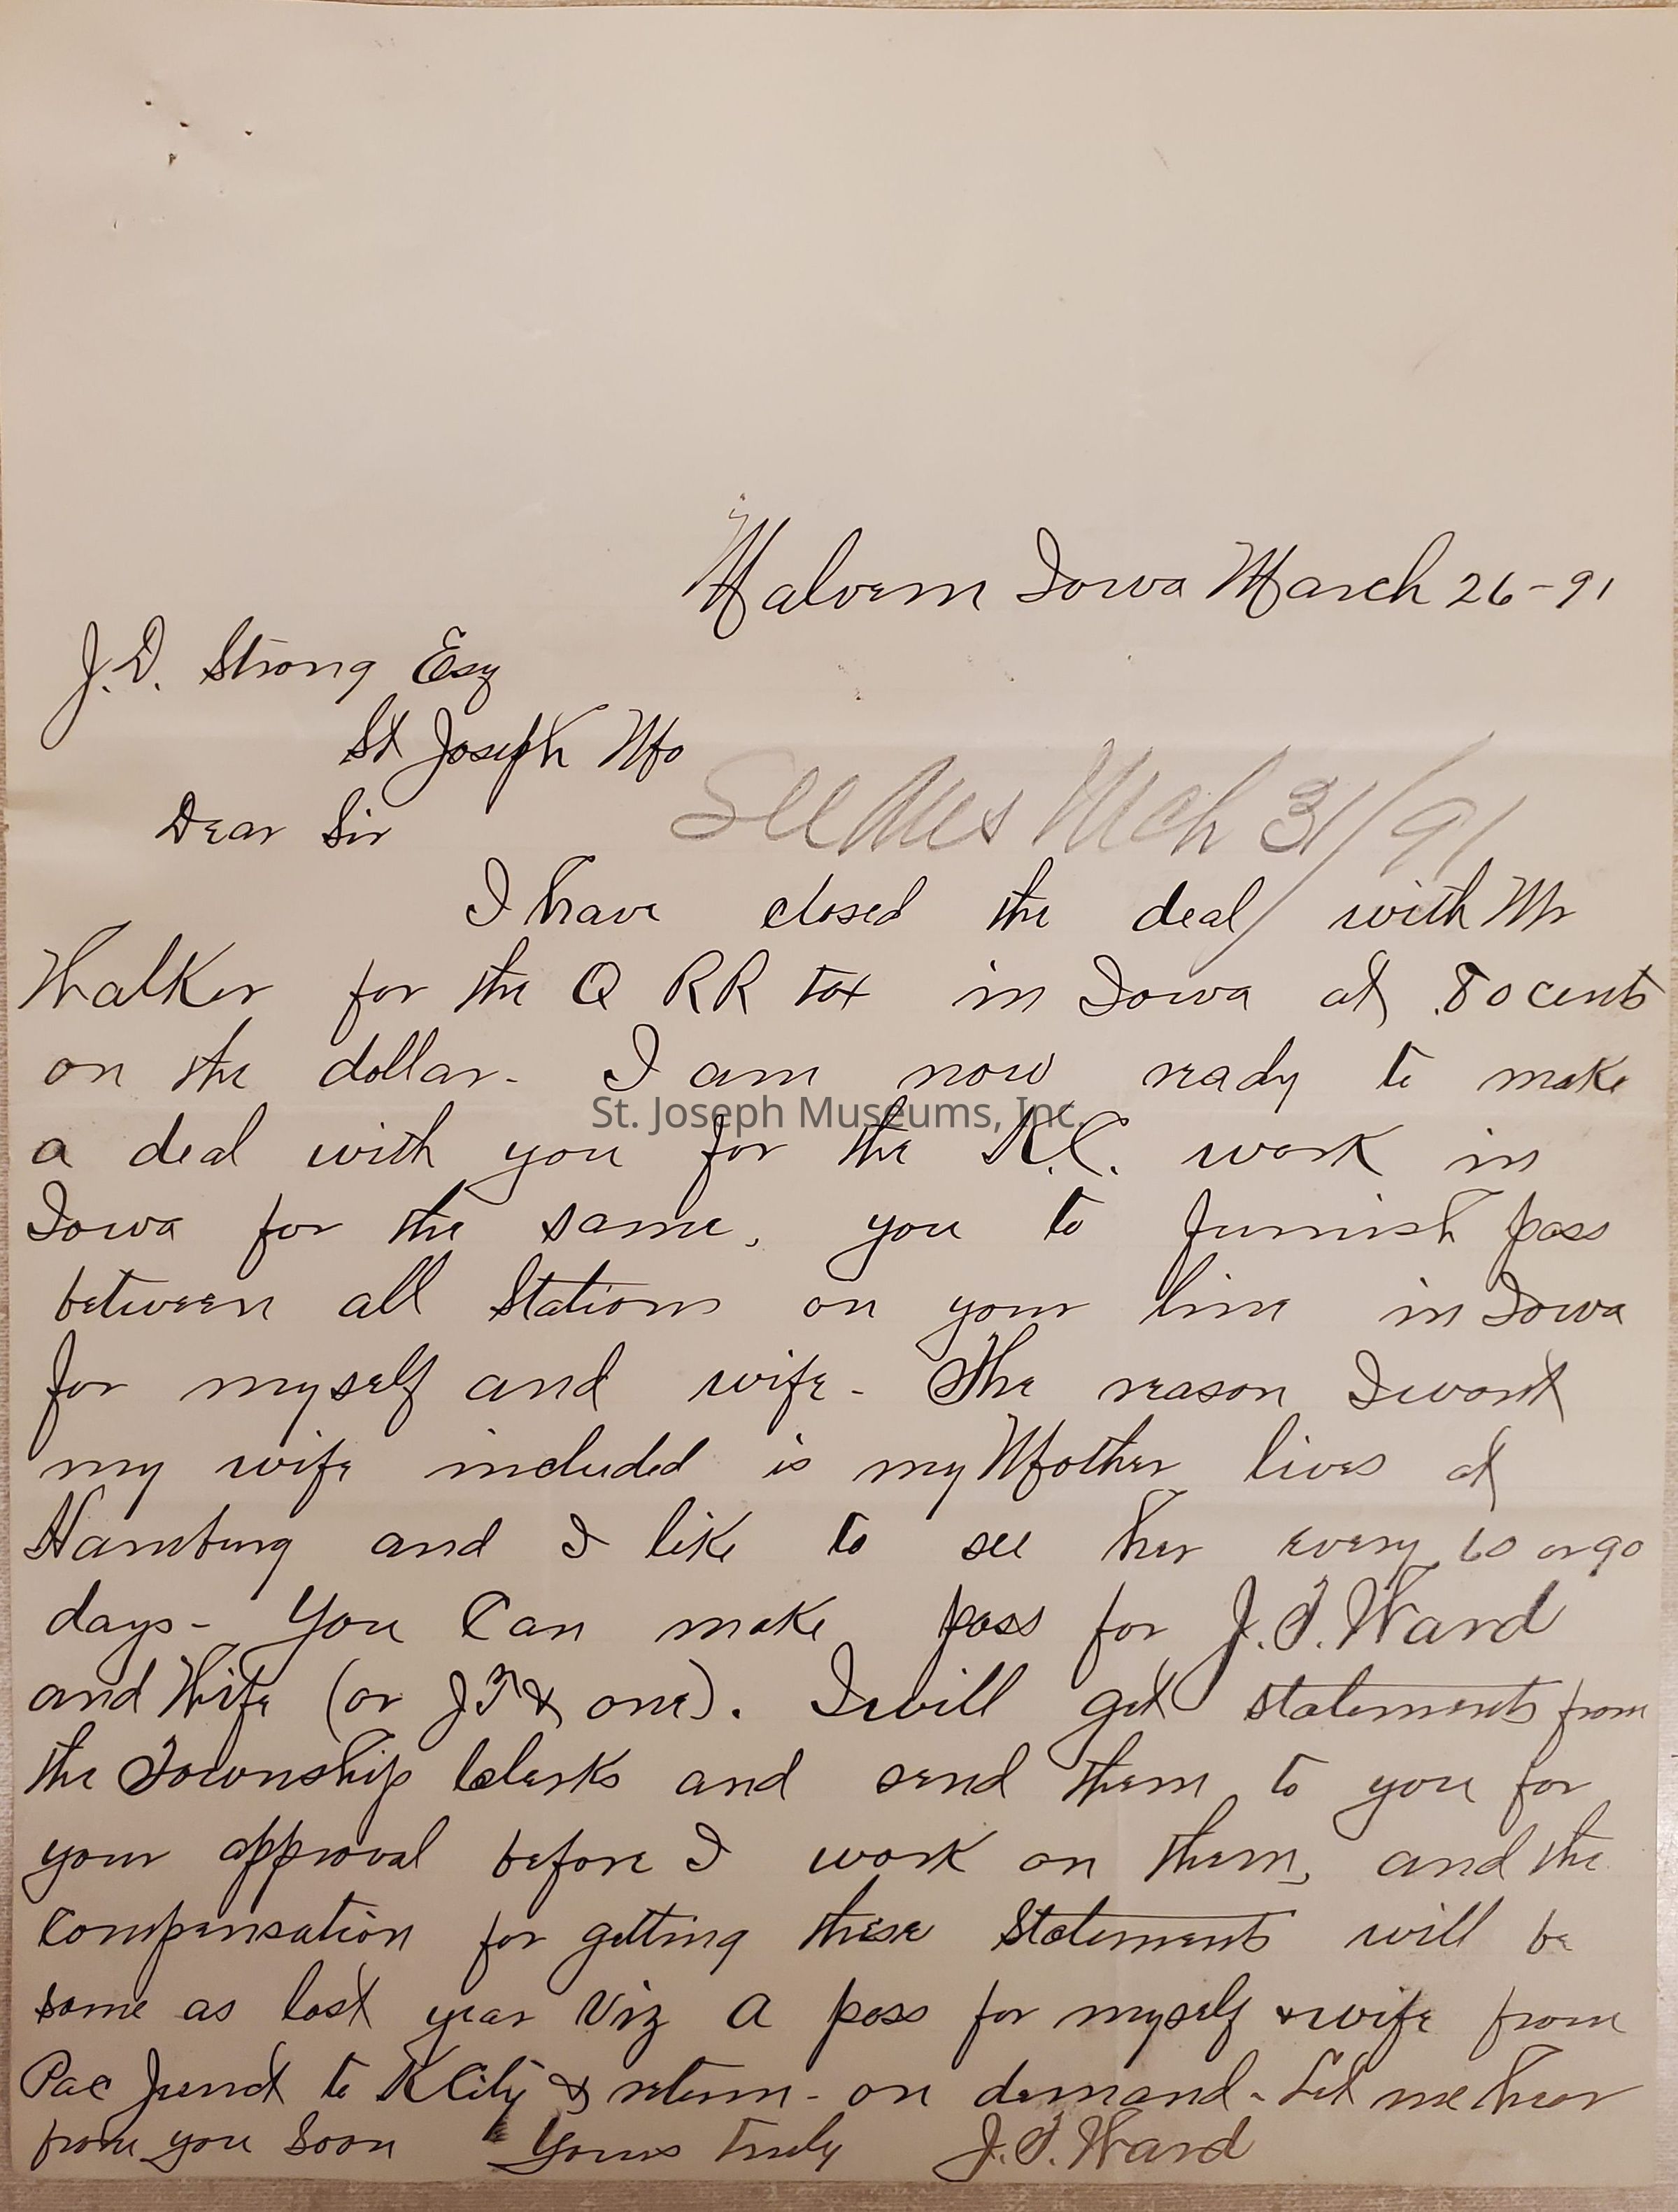 Malvern Iowa March 26-91
J.D. Strong Esq
St Joseph Mo
Dear Sir
See Mes Mch 31/91
I have closed the deal with Mr
Walker for the Q RR tax in Iowa at .80 cents
on the dollar. I am now ready to make
St. Joseph Museums, Inc.
a deal with you for the K.C. work in
Iowa for the same, you to furnish pass
between all Stations on your line in Iowa
for myself and wife - The reason I want
my wife included is my Mother lives at
Hamburg and I like to see her every 60 or 90
days - You Can make pass for J.T. Ward
and Wife (or J T & one). I will get statements from
the Township Clerks and send them to you for
your approval before I work on them, and the
Compensation for getting these Statements will be
same as last year Viz A pass for myself & wife from
Pac Junct to K City & return - on demand - Let me hear
from you Soon Yours Truly J.T. Ward